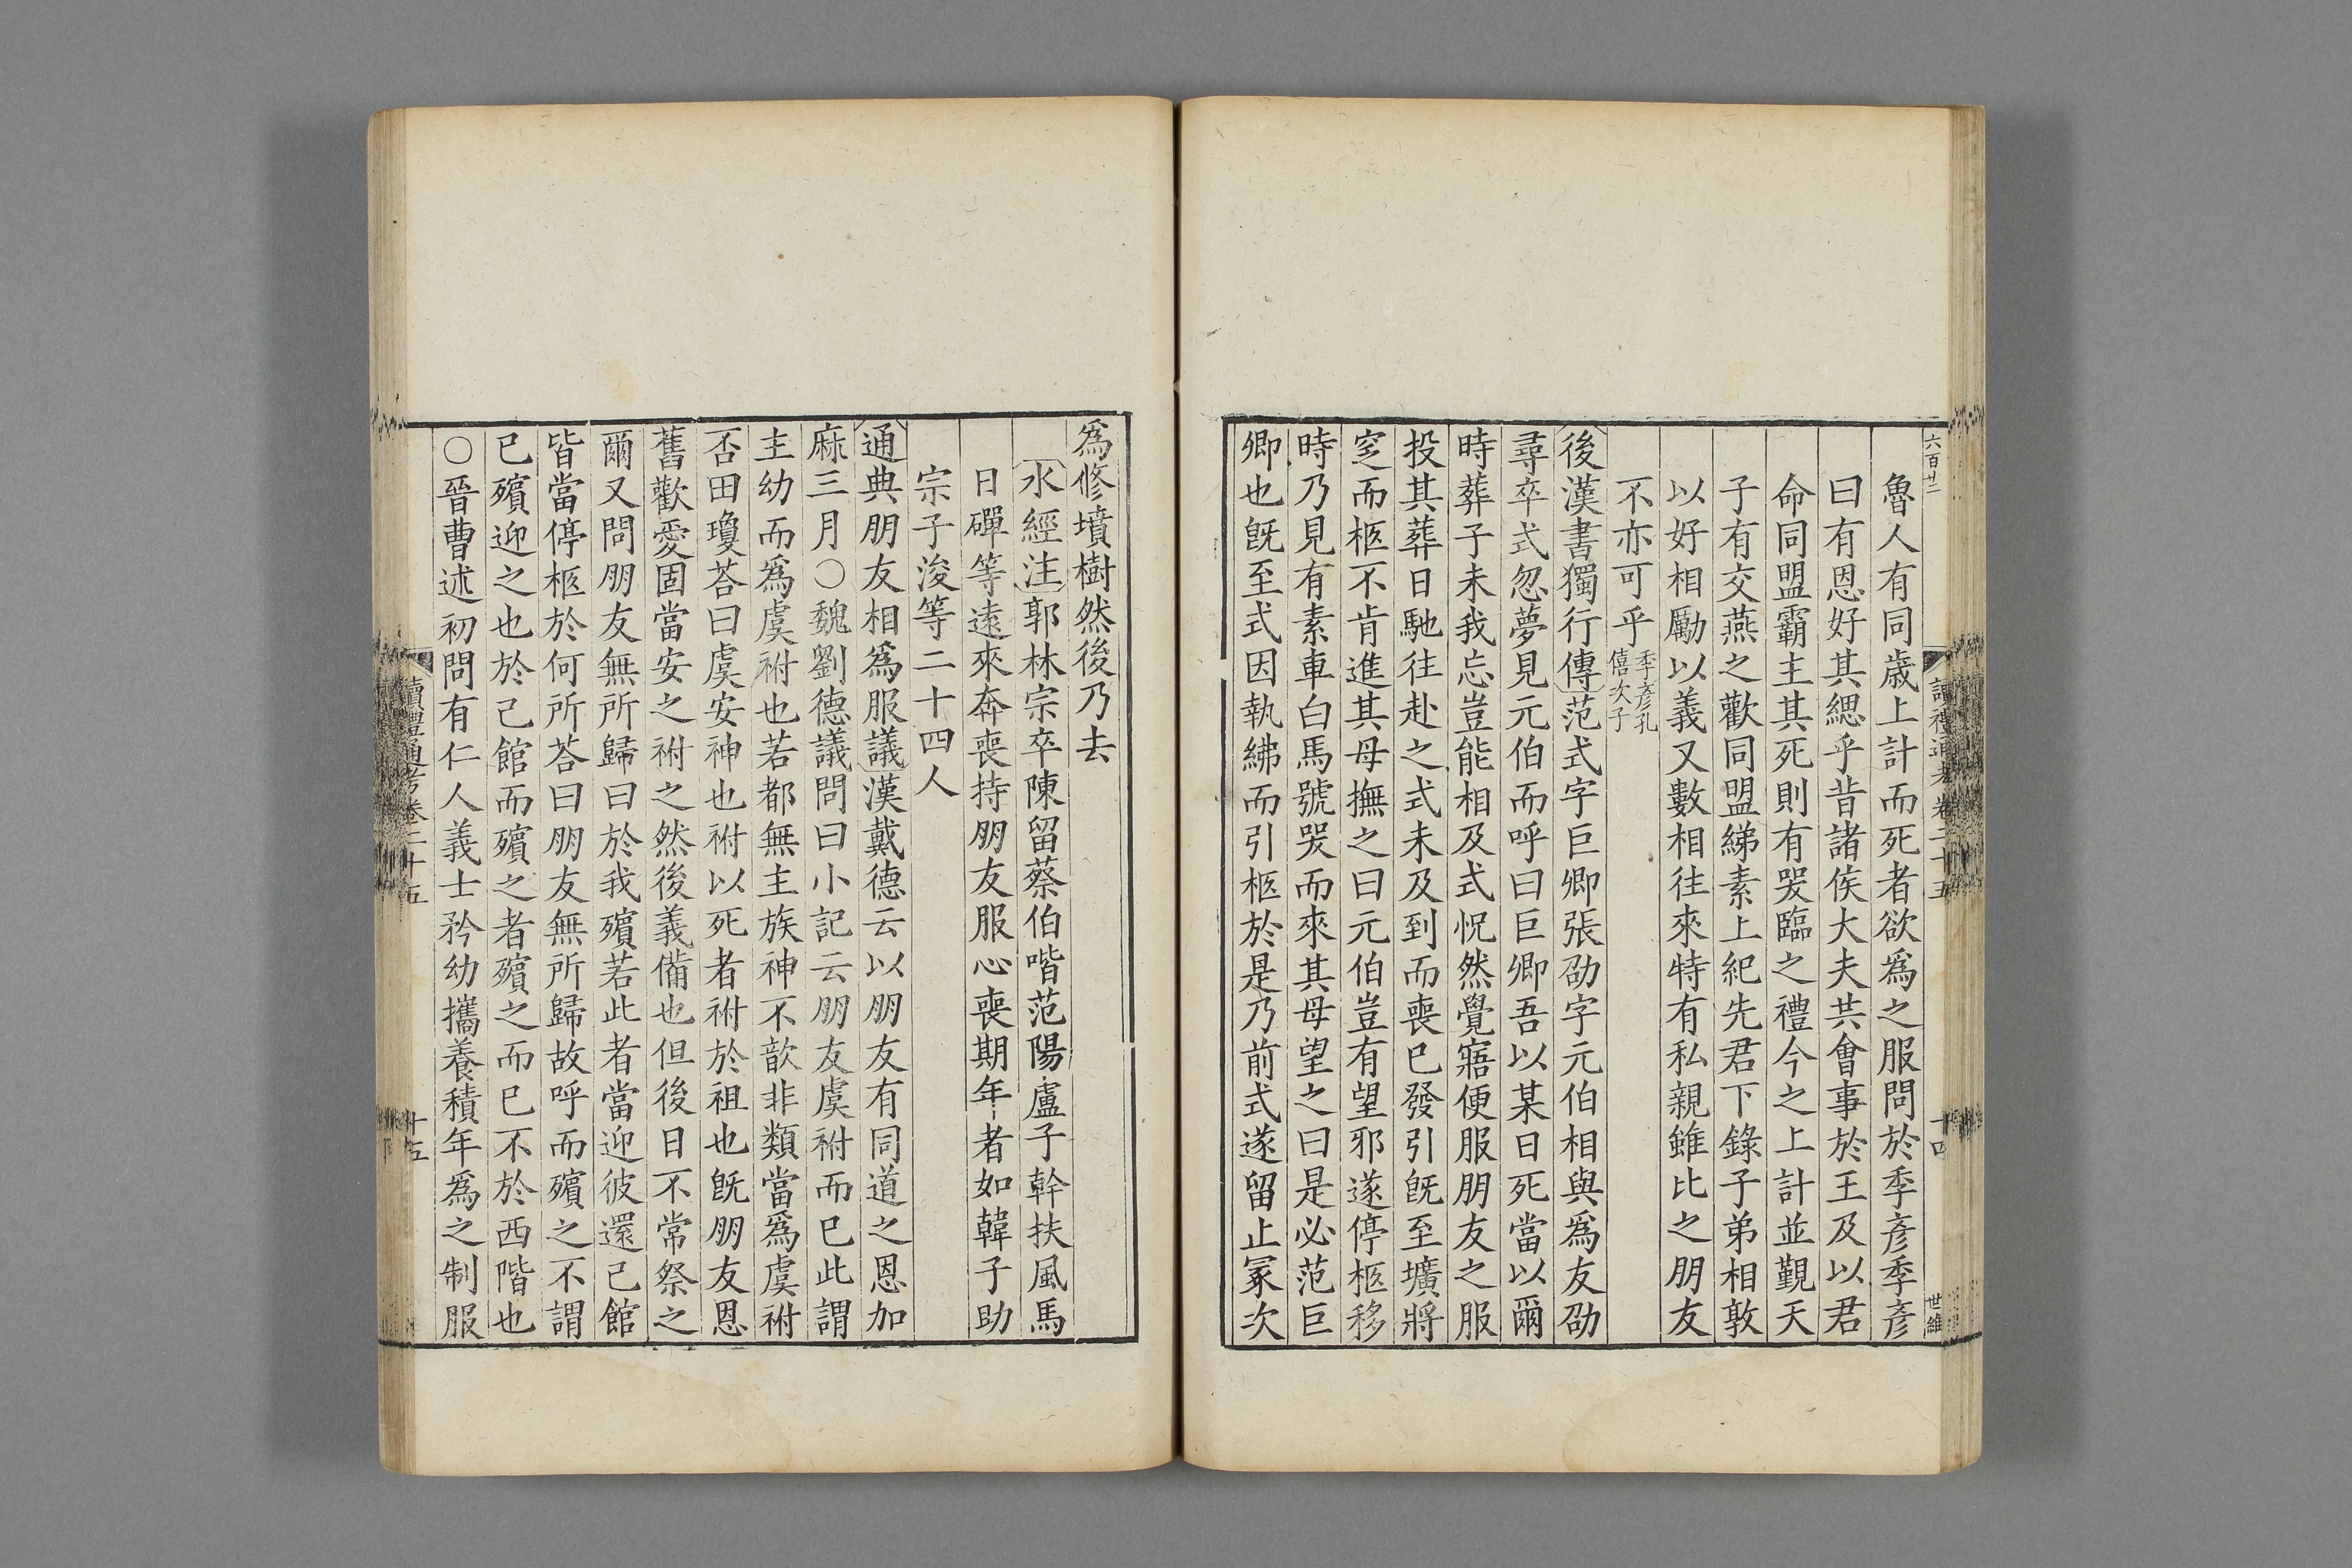 六百廿二
讀禮通考卷二十五
十四
世維
魯人有同歲上計而死者欲爲之服問於季彥季彥
曰有恩好其緦乎昔諸侯大夫共會事於王及以君
命同盟霸主其死則有哭臨之禮今之上計並覲天
子有交燕之歡同盟綈素上紀先君下錄子弟相敦
以好相勵以義又數相往來特有私親雖比之朋友
不亦可乎季彥孔僖次子
後漢書獨行傳范式字巨卿張劭字元伯相與爲友劭
尋卒式忽夢見元伯而呼曰巨卿吾以某日死當以爾
時葬子未我忘豈能相及式怳然覺寤便服朋友之服
投其葬日馳往赴之式未及到而喪已發引旣至壙將
窆而柩不肯進其母撫之曰元伯豈有望邪遂停柩移
時乃見有素車白馬號哭而來其母望之曰是必范巨
卿也旣至式因執紼而引柩於是乃前式遂留止冢次
爲修墳樹然後乃去
水經注郭林宗卒陳留蔡伯喈范陽盧子幹扶風馬
日磾等遠來奔喪持朋友服心喪期年者如韓子助
宗子浚等二十四人
通典朋友相爲服議漢戴德云以朋友有同道之恩加
麻三月○魏劉德議問曰小記云朋友虞祔而已此謂
主幼而爲虞祔也若都無主族神不歆非類當爲虞祔
否田瓊荅曰虞安神也祔以死者祔於祖也旣朋友恩
舊歡愛固當安之祔之然後義備也但後日不常祭之
爾又問朋友無所歸曰於我殯若此者當迎彼還己館
皆當停柩於何所荅曰朋友無所歸故呼而殯之不謂
已殯迎之也於己館而殯之者殯之而已不於西階也
○晉曹述初問有仁人義士矜幼攜養積年爲之制服
讀禮通考卷二十五
十五